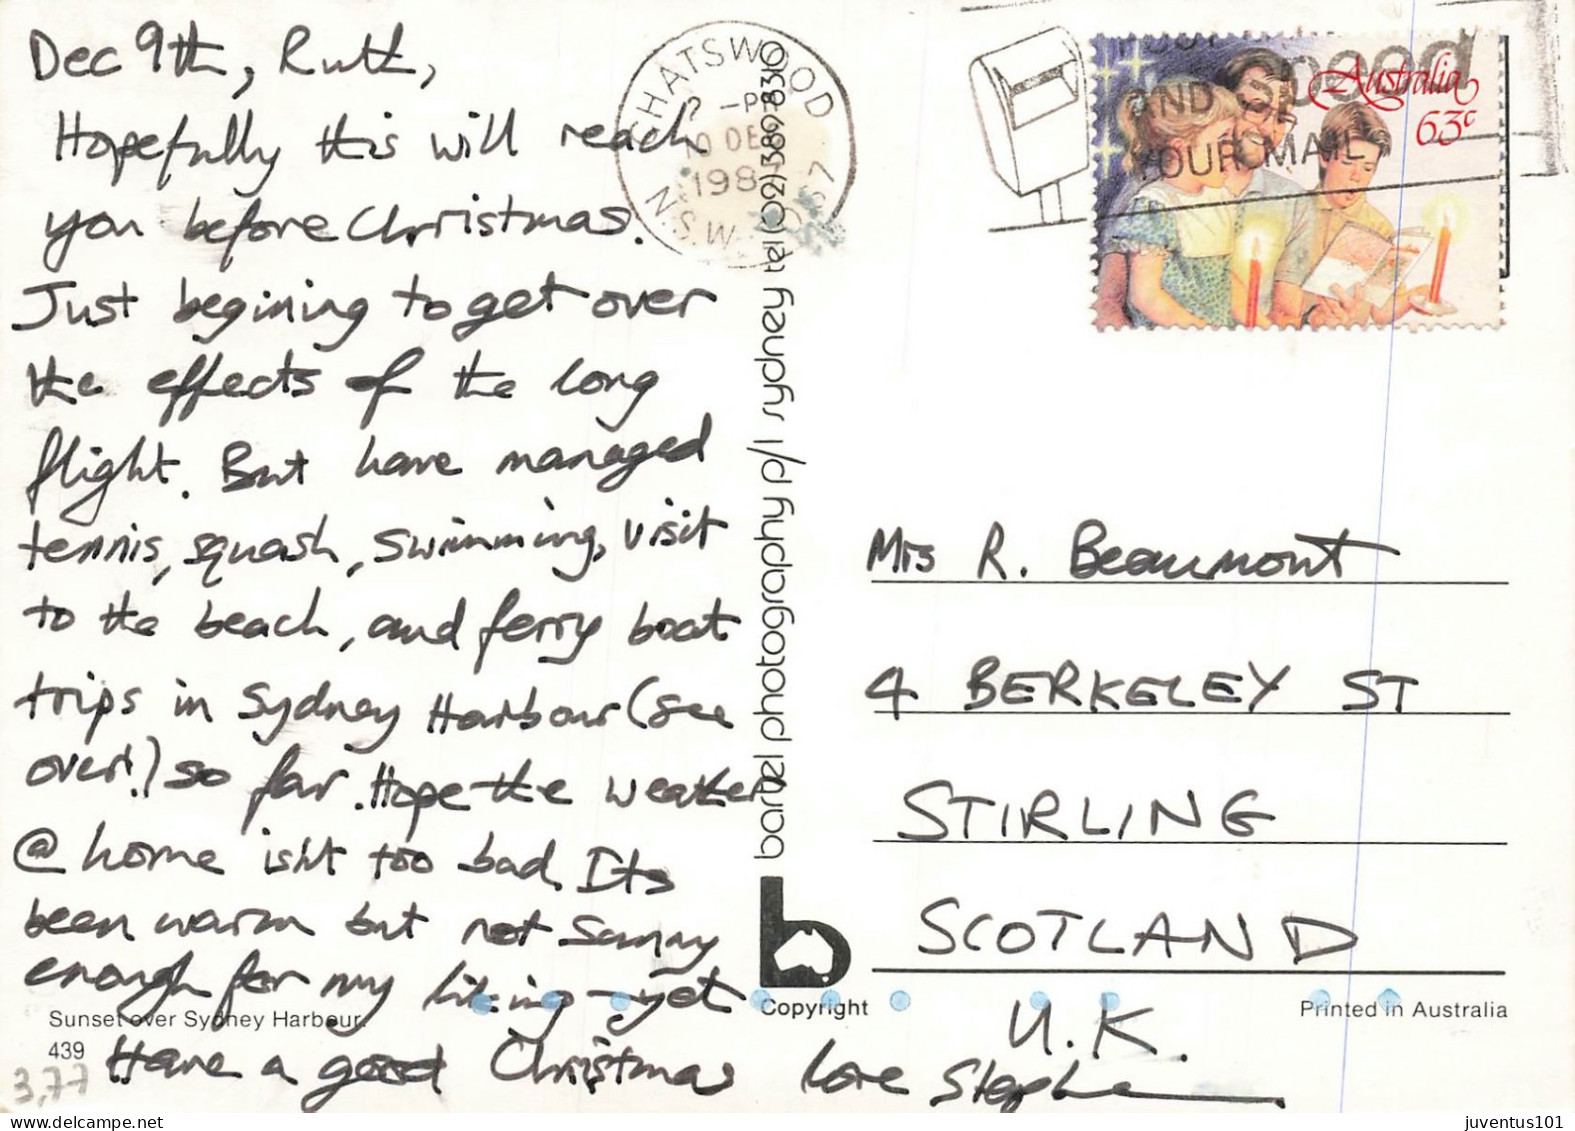 Dec 9th, Ruth,
Hopefully this will reach
you before Christmas.
Just begining to get over
the effects of the long
flight. But have managed
tennis, squash, swimming, visit
to the beach, and ferry boat
trips in Sydney Harbour (see
over!) so far. Hope the weather
@ home isn't too bad. Its
been warm but not sunny
enough for my liking - yet
Have a good Christmas love Stephen
Sunset over Sydney Harbour.
439
3,77
CHATSWOOD
-P
10 DE
198
N.S.W.
AND SPEED
YOUR MAIL
Australia
63c
bartel photography p/l sydney tel (02) 3809830
b
Copyright
Mrs R. Beaumont
4 BERKELEY ST
STIRLING
SCOTLAND
U.K.
Printed in Australia
juventus101